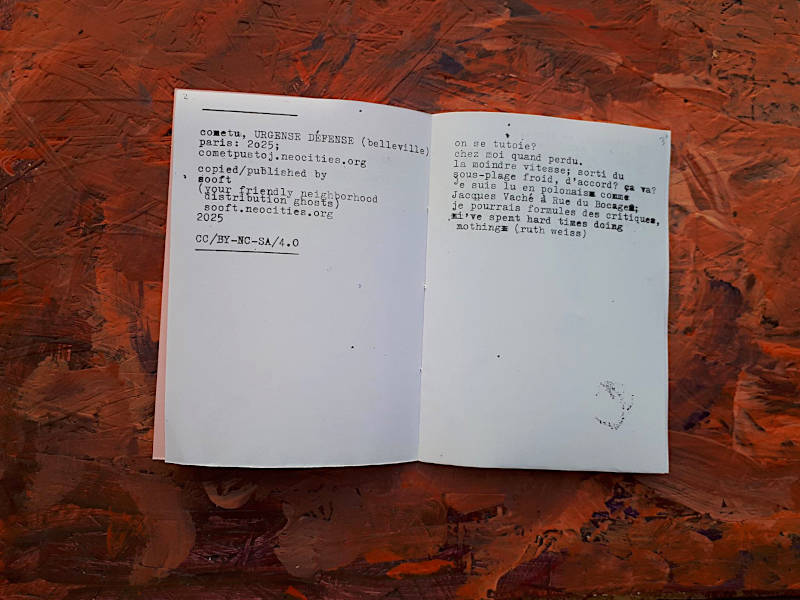 2
cometu, URGENSE DÉFENSE (belleville)
paris: 2o25;
cometpustoj.neocities.org
copied/published by
sooft
(your friendly neighborhood
distribution ghosts)
sooft.neocities.org
2025
CC/BY-NC-SA/4.0
3
on se tutoie?
chez moi quand perdu.
la moindre vitesse; sorti du
sous-plage froid, d'accord? ça va?
je suis lu en polonais comme
Jacques Vaché à Rue du Bocage;
je pourrais formules des critiques,
i've spent hard times doing
nothing (ruth weiss)